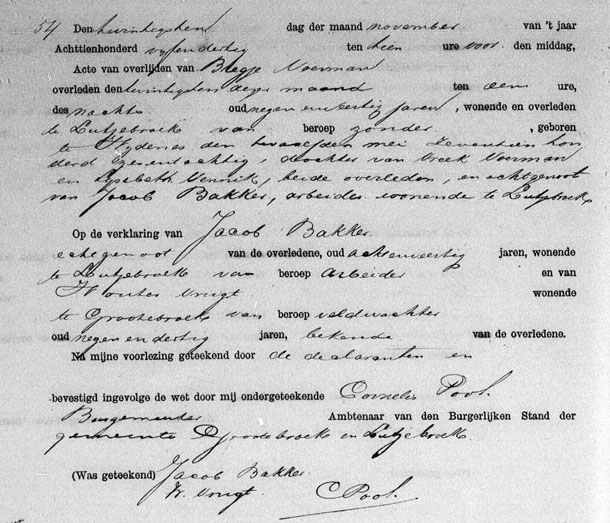 54 Den twintigsten dag der maand november van 't jaar
Achttienhonderd vyfendertig ten tien ure voor den middag,
Acte van overlijden van Bregje Noorman
overleden den twintigsten dezer maand ten een ure,
des nachts oud negen en veertig jaren, wonende en overleden
te Lutjebroek van beroep zonder, geboren
te Wydenes den twaalfden mei Zeventien hon
derd zesentachtig, dochter van Noorman
en Lysbeth Vennik, beide overleden, en echtgenoot
van Jacob Bakker, arbeider wonende te Lutjebroek
Op de verklaring van Jacob Bakker
echtgenoot van de overledene, oud achtenveertig jaren, wonende
te Lutjebroek van beroep arbeider en van
Wouter Vrugt wonende
te Grootebroek van beroep veldwachter
oud negen en dertig jaren, bekende van de overledene.
Na mijne voorlezing geteekend door de declaranten en
bevestigd ingevolge de wet door mij ondergeteekende Cornelis Pool.
Burgemeester Ambtenaar van den Burgerlijken Stand der
gemeente Grootebroek en Lutjebroek
(Was geteekend) Jacob Bakker.
W. Vrugt C Pool.